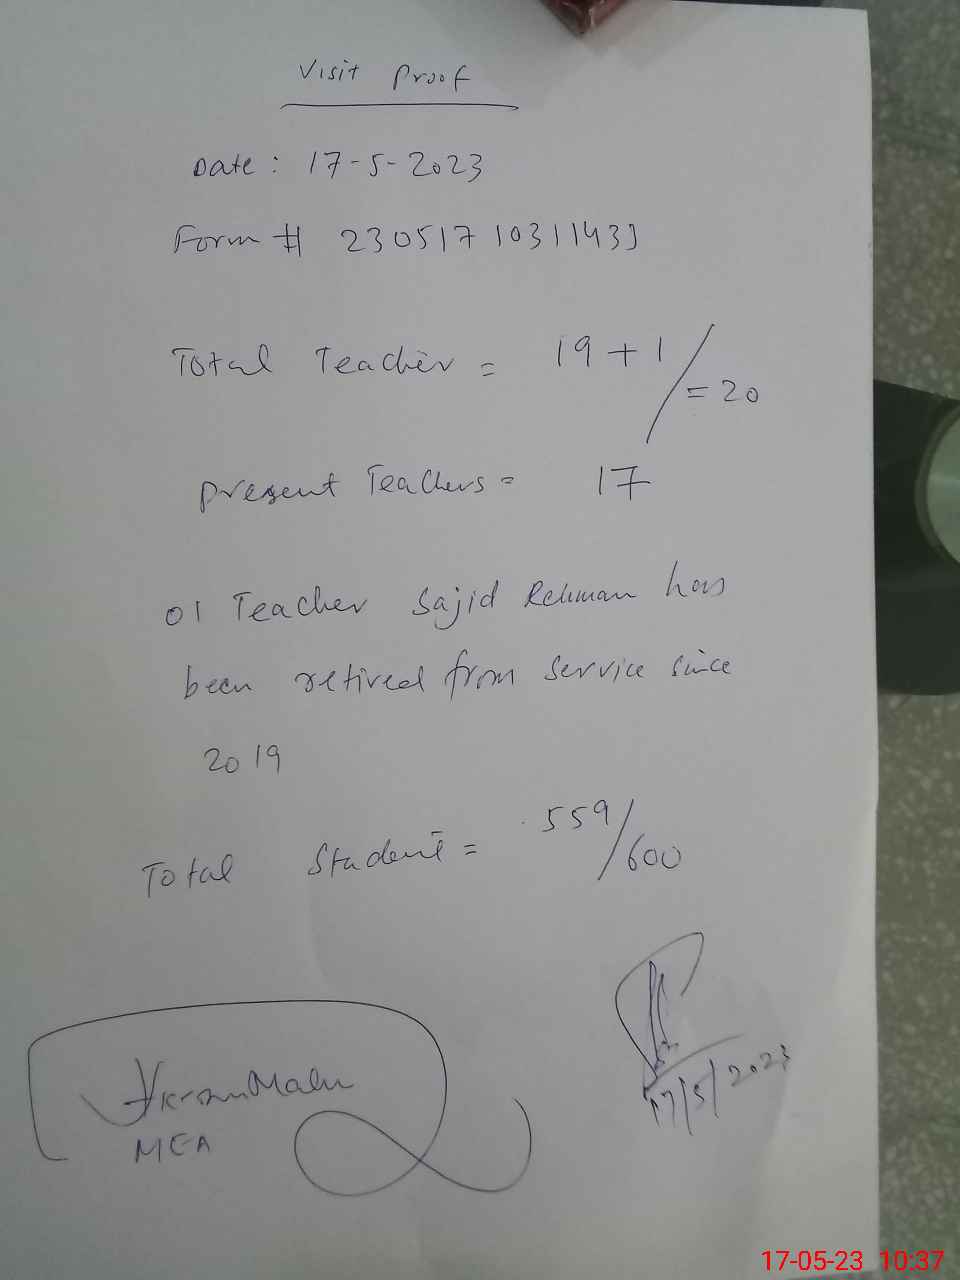 Visit Proof
Date: 17-5-2023
Form # 230517 10311433
Total Teacher = 19+1/=20
Present Teachers = 17
01 Teacher Sajid Rehman has
been retired from service since
2019
Total Student = 559/600
MEA
17/5/2023
17-05-23 10:37